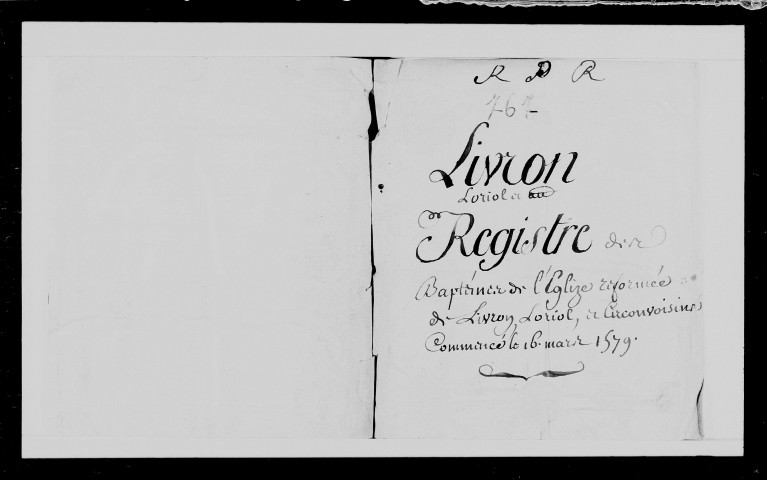 R P R
767
Livron
Loriol et
Registre des
Baptêmes de l'Eglize reformée
de Livron, Loriol, et circonvoisins
Commencé le 16. mars 1579.